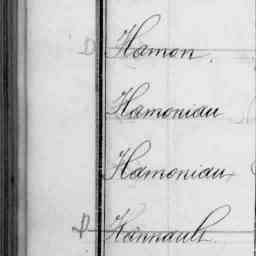 D Hamon.
Hamoniau
Hamoniau
D Hannault